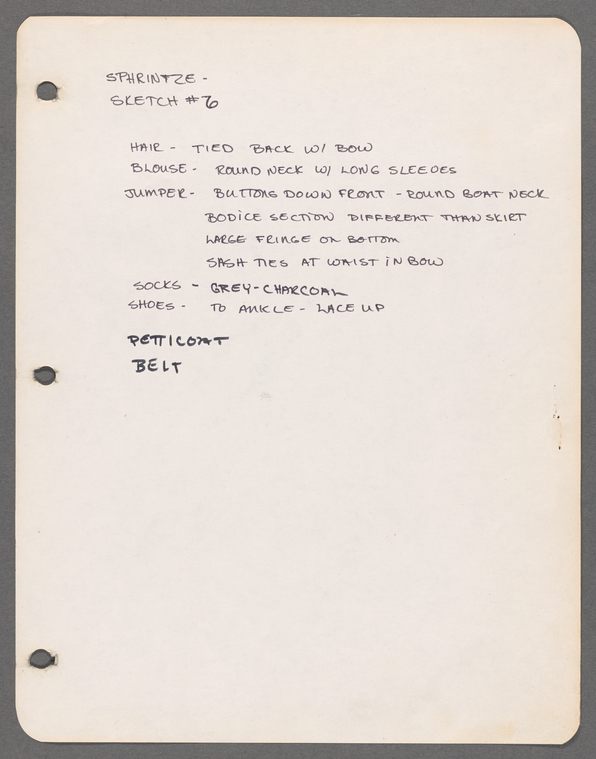 SPHRINTZE -
SKETCH #6
HAIR - TIED BACK W/ BOW
BLOUSE - ROUND NECK W/ LONG SLEEVES
JUMPER - BUTTONS DOWN FRONT - ROUND BOAT NECK
BODICE SECTION DIFFERENT THAN SKIRT
LARGE FRINGE ON BOTTOM
SASH TIES AT WAIST IN BOW
SOCKS - GREY-CHARCOAL
SHOES - TO ANKLE - LACE UP
PETTICOAT
BELT